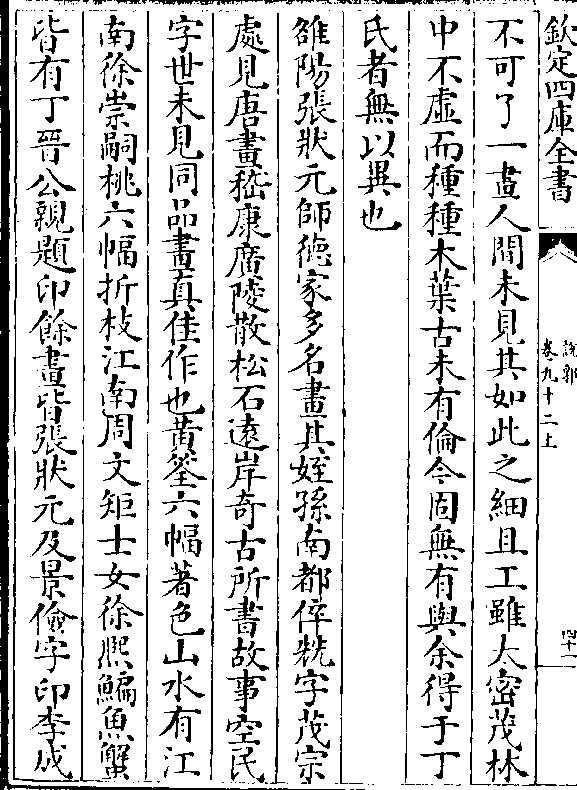 欽定四庫全書
說郛
卷九十二上
四十一
不可了一畫人間未見其如此之細且工雖太密茂林
中不虛而種種木葉古未有倫今固無有與余得于丁
氏者無以異也
雒陽張狀元師德家多名畫其姪孫南都倅兟字茂宗
處見唐畫嵇康廣陵散松石遠岸奇古所書故事空民
字世未見同品畫真佳作也黃筌六幅著色山水有江
南徐崇嗣桃六幅折枝江南周文矩士女徐熙鯿魚蟹
皆有丁晉公親題印餘畫皆張狀元及景儉字印李成